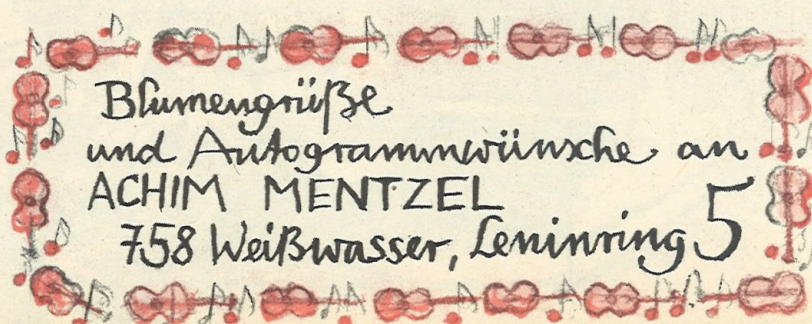 Blumengrüße
und Autogrammwünsche an
ACHIM MENTZEL
758 Weißwasser, Leninring 5